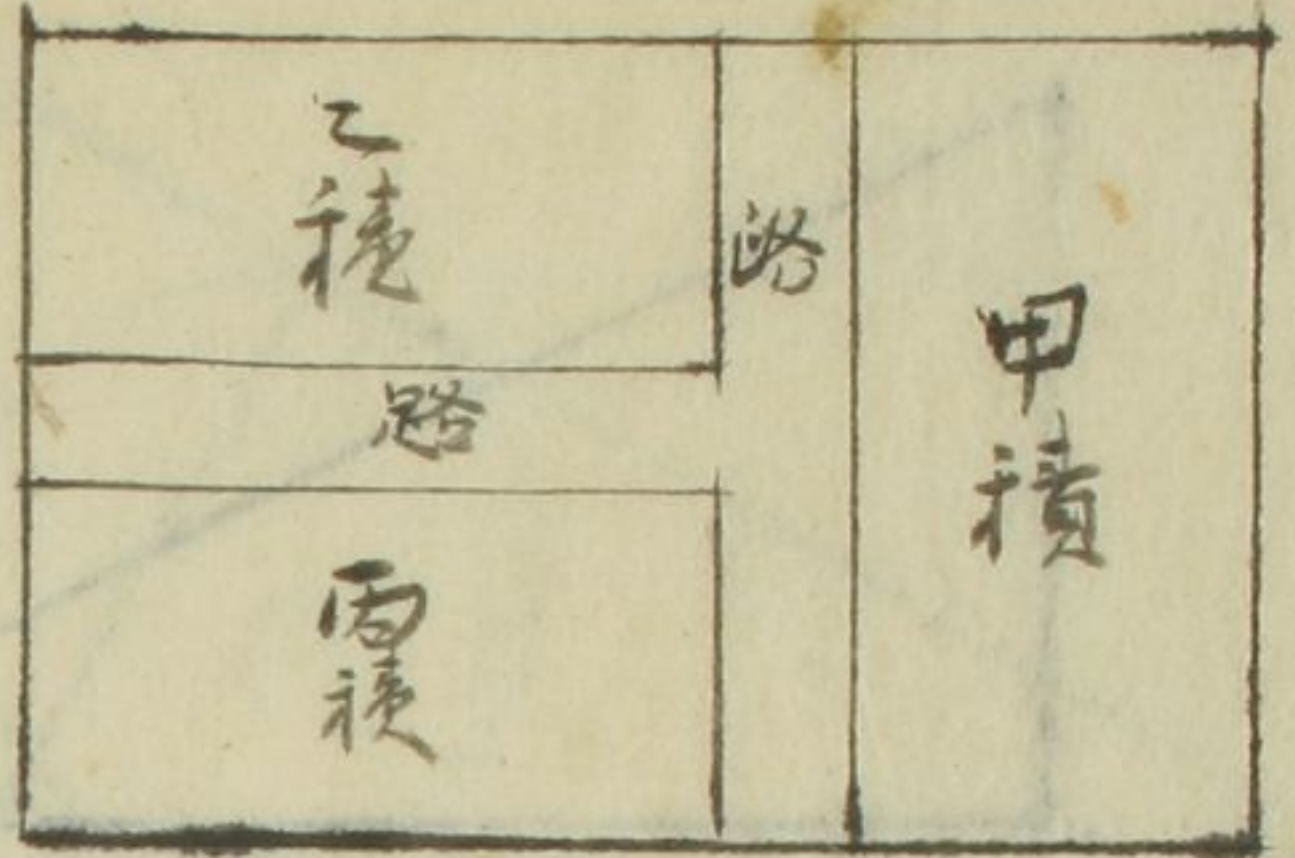 甲積
路
乙積
路
丙積